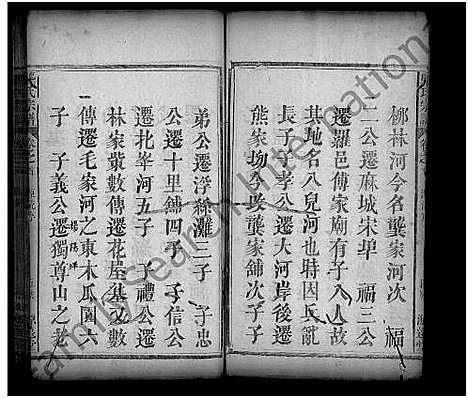 柳林河今名龔家河次　福
二公遷麻城宋埠　福三公
遷羅邑傅家廟有子八人故
其地名八兒河也特因氏亂
長子子孝公遷大河岸後遷
熊家坳今改龔家舖次子子
弟公遷浮絲灘三子　子忠
公遷十里舖四子　子信公
遷北峯河五子　子禮公遷
林家冀數傳遷花屋基又數
傳遷毛家河之東木瓜園六
子　子義公遷獨尊山之老
楊桃坪
FamilySearch International